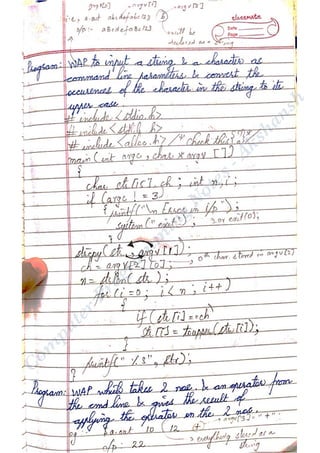 argv[0] argv[1] argv[2]
i.e., a.out abcdefabc123 b
o/p:- aBcdefaBc123
will be
declared as a string
classmate
Date
Page
Program: WAP to input a string & a character as
command line parameters & convert the
occurences of the character in the string to its
upper case.
# include <stdio.h>
# include <stdlib.h>
# include <alloc.h> /* check this */
main (int argc, char * argv [])
{
char str[15], ch; int n, i;
if (argc != 3)
{
printf("\n Error in i/p");
system("exit"); 2 or exit(0);
}
strcpy (str, argv[1]);
ch = argv[2][0]; 0th char. stored in argv[2]
n = strlen(str);
for (i=0; i<n; i++)
{
if (str[i]==ch)
str[i]=toupper(str[i]);
}
printf("%s", str);
}
Program: WAP which takes 2 nos. & an operator from
the cmd line & gives the result of
applying the operator on the 2 nos.
argv[3] = "+"
eg. a.out 10 12 +
o/p - 22 everybody stored as a
string